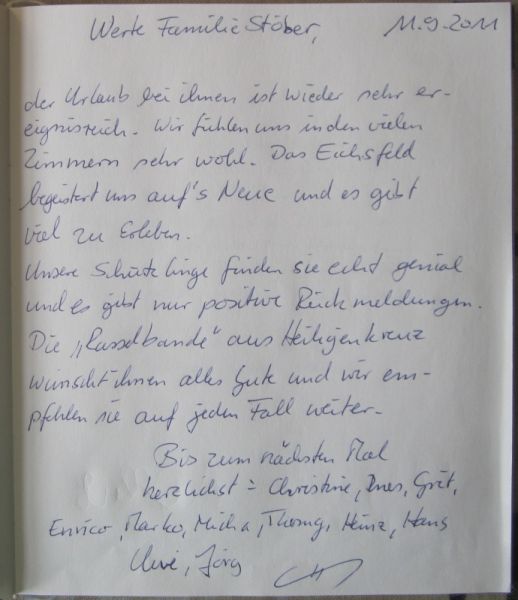 Werte Familie Stöber, 11.9.2011
der Urlaub bei ihnen ist wieder sehr er-
eignisreich. Wir fühlen uns in den vielen
Zimmern sehr wohl. Das Eichsfeld
begeistert uns auf's Neue und es gibt
viel zu Erleben.
Unsere Schützlinge finden sie echt genial
und es gibt nur positive Rückmeldungen.
Die „Rasselbande" aus Heiligenkreuz
wünscht ihnen alles Gute und wir em-
pfehlen sie auf jeden Fall weiter.
Bis zum nächsten Mal
herzlichst = Christine, Ines, Grit,
Enrico, Marko, Micha, Thomas, Heinz, Hans
Uwe, Jörg